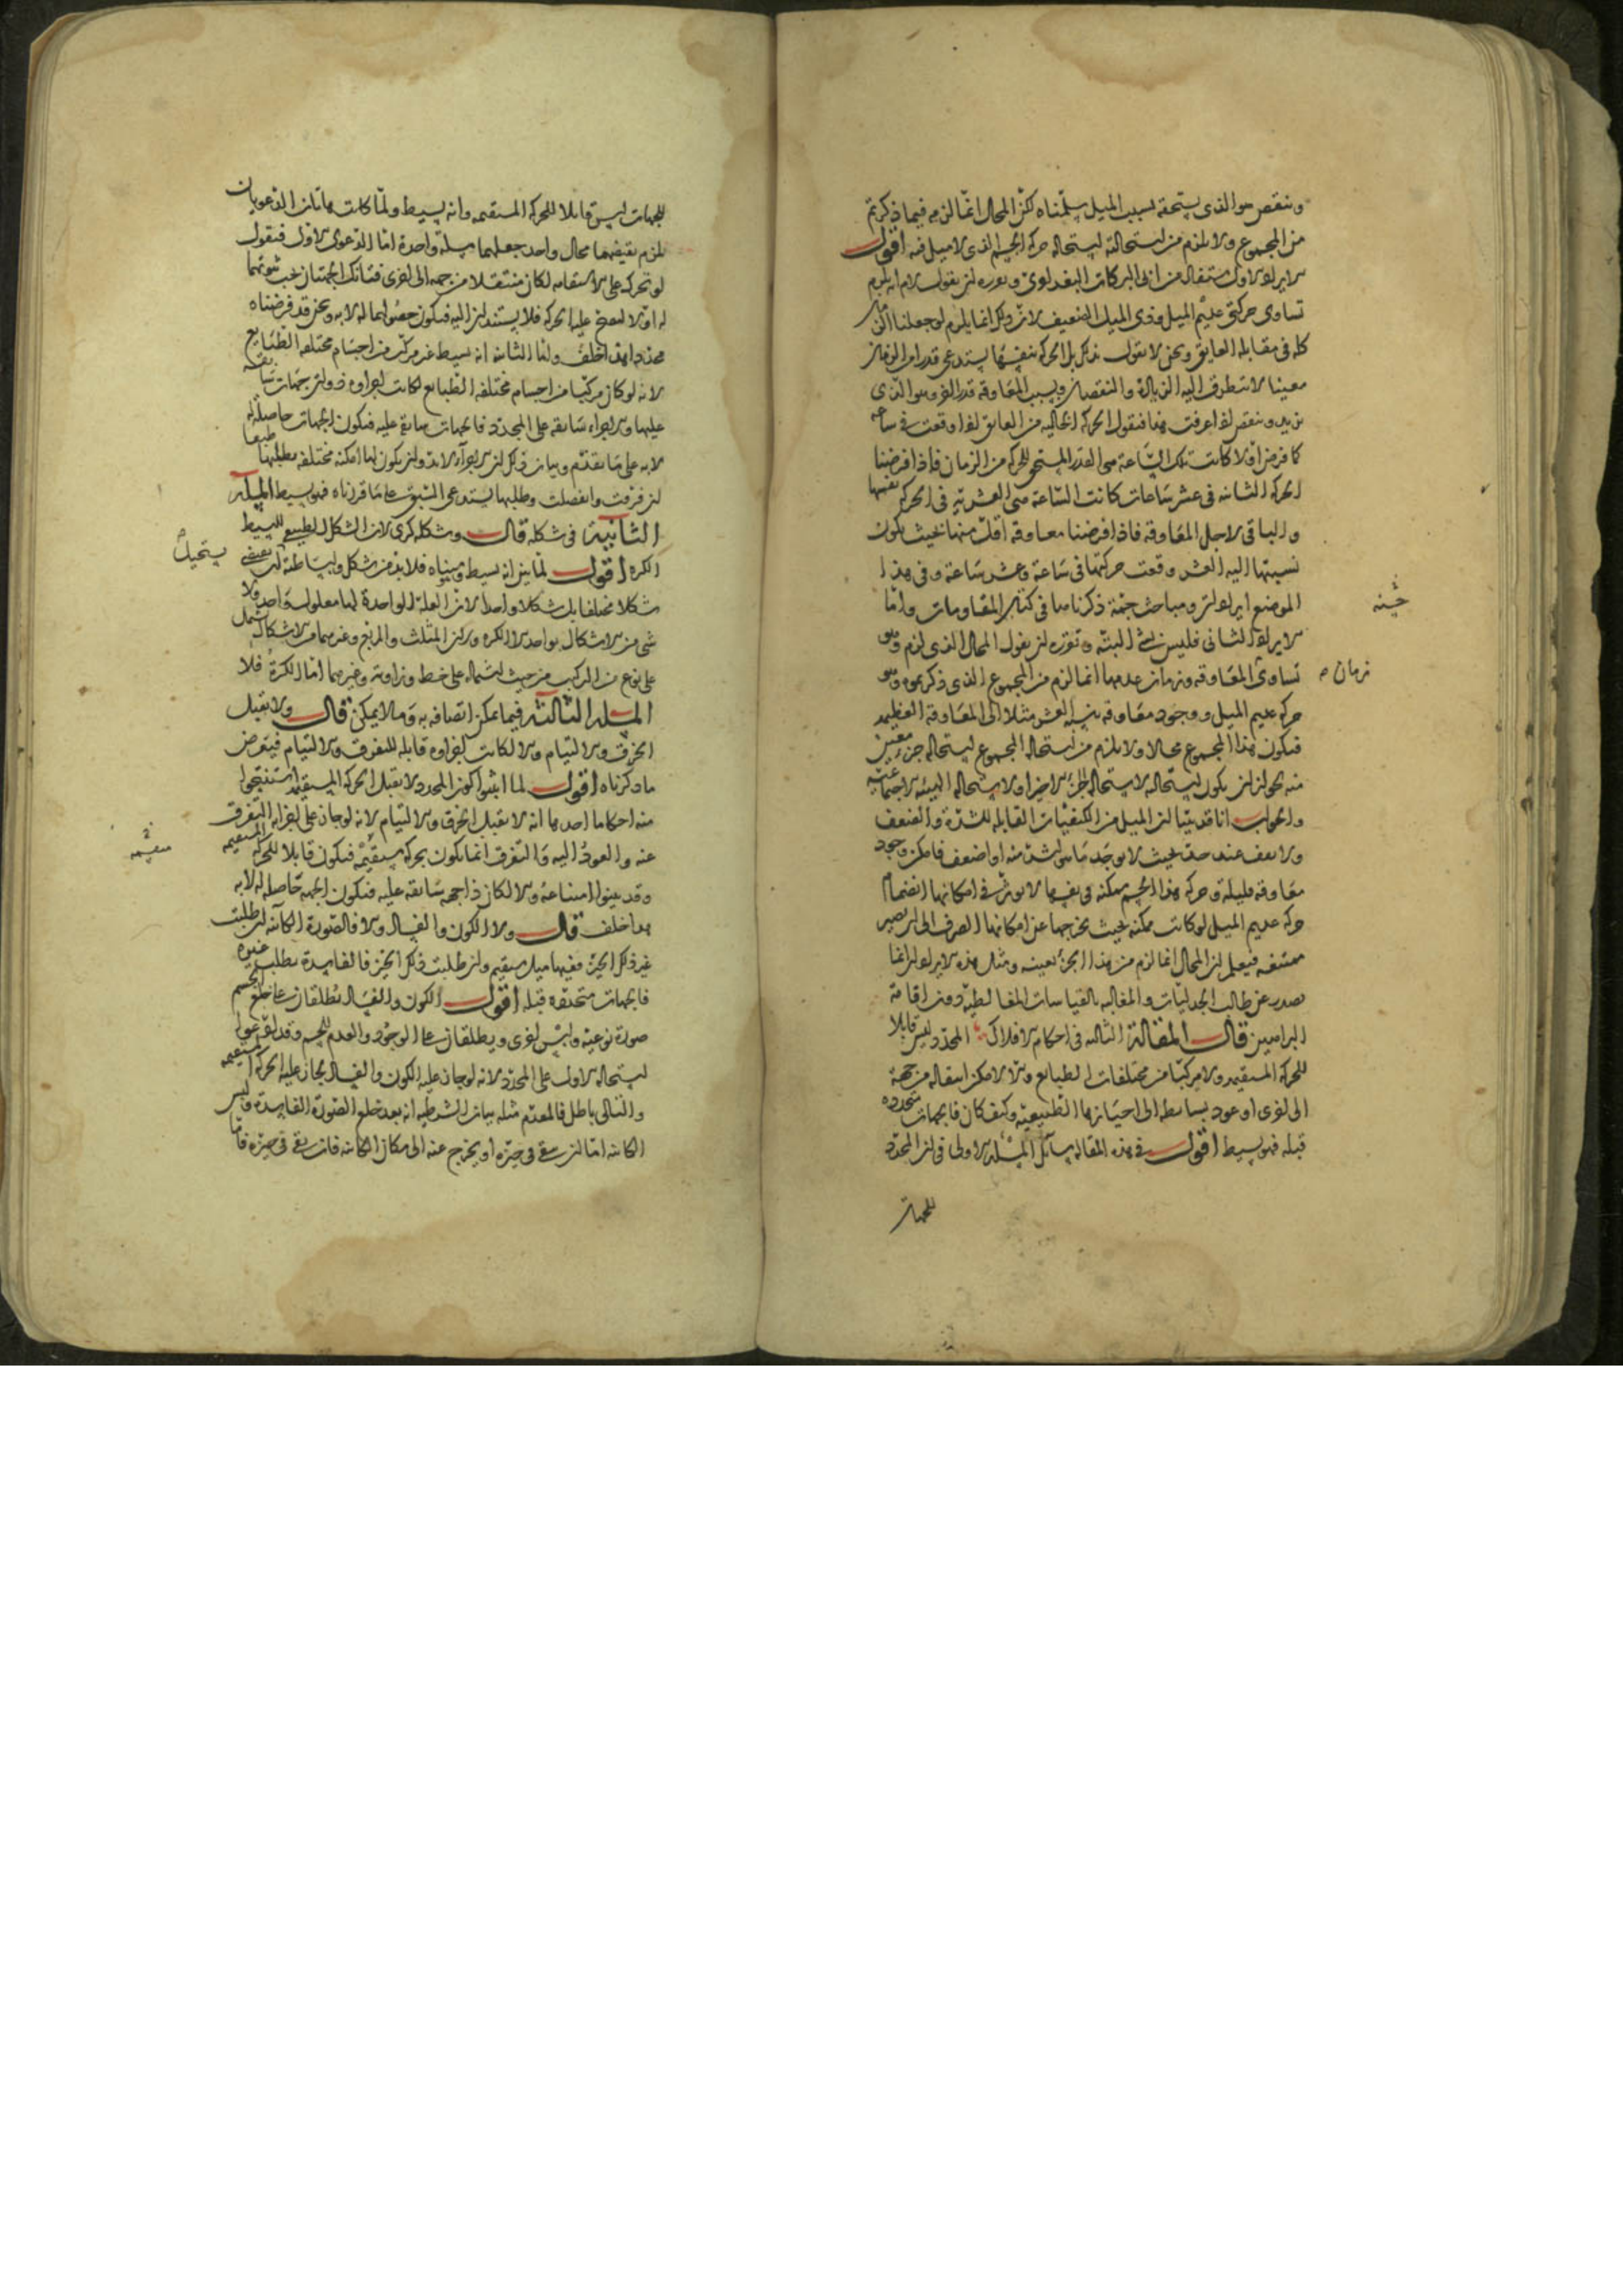 وينقص هو الذي يستحقه بسبب الميل سلمناه لكن المحال انما لزم فيما ذكرتم
من المجموع ولا يلزم من استحالته استحاله حركه الجسم الذي لا ميل فيه اقول
الايراد الاول مستفاد من ابى البركات البغدادى وتقريره ان يقول لا م انه يلزم
تساوى حركتى عديم الميل وذى الميل الضعيف لان ذلك انما يلزم لو جعلنا الزمان
كله فى مقابله العايق ونحن لا نقول بذلك بل الحركه بنفسها يستدعى قدرا من الزمان
معينا لا تتطرق اليه الزيادة والنقصان وبسبب المعاوقه قدرا اخر وهو الذى
يزيد وينقص اذا عرفت هذا فنقول الحركه الخاليه من العايق اذا وقعت فى ساعه
كما فرض اولا كانت تلك الساعة هى القدر المستحق للحركه من الزمان فاذا فرضنا
الحركه الثانيه فى عشر ساعات كانت الساعة هى العشرية فى الحركه نفسها
والباقى لاجل المعاوقه فاذا فرضنا معاوقه اقل منها بحيث يكون
نسبتها اليه العشر وقعت حركتها فى ساعة وعشر ساعة وفى هذا
الموضع ايرادات ومباحث جمة ذكرناها فى كتاب المقاومات واما
الايراد الثانى فليس بشئ البتة وتقريره ان يقول المحال الذى لزم وهو
تساوى المعاوقه وزمان عدمها انما لزم من المجموع الذى ذكرتموه وهو
حركه عديم الميل ووجود معاوقه بنسبه العشر مثلا الى المعاوقه العظيمه
فيكون هذا المجموع محالا ولا يلزم من استحاله المجموع استحاله جزء معين
منه لجواز ان يكون استحاله لاستحاله الجزء الاخر او لاستحاله الهيئه الاجتماعيه
والجواب انا قد بينا ان الميل من الكيفيات القابله للشدة والضعف
ولا يقف عند حد بحيث لا يوجد ما هو اشد منه او اضعف فامكن وجود
معاوقه قليلة وحركه هذا الجسم ممكنه فى نفسها لا يوثر فى امكانها انضمام
حركه عديم الميل لو كانت ممكنه بحيث يخرجها عن امكانها الصرف الى ان يصير
ممتنعه فيعلم ان المحال انما لزم من هذا الجزء بعينه ومثل هذه الايرادات انما
يصدر عن طالب الجدليات والمغالبه بالقياسات المغالطية دون اقامة
البراهين قال المقالة الثالثه فى احكام الافلاك المحدد ليس قابلا
للحركه المستقيمه ولا مركبا من مختلفات الطبايع والا لامكن انتقاله من جهة
الى اخرى او عود بسايطه الى احيازها الطبيعية وكيف كان فالجهات متحدده
قبله فهو بسيط اقول فى هذه المقاله مسائل المسلة الاولى فى ان المحدد
للجهات
خمسة
زمان صح
للجهات ليس قابلا للحركه المستقيمه وانه بسيط ولما كانت هاتان الدعويان
يلزم نقيضهما محال واحد جعلهما مسلة واحدة اما الدعوى الاولى فنقول
لو تحرك على الاستقامه لكان منتقلا من جهه الى اخرى فتانك الجهتان يجب ثبوتهما
له اولا لتصح عليه الحركه فلا يستندان اليه فيكون حصولهما له لا به ونحن قد فرضناه
محددا هذا خلف واما الثانيه انه بسيط غير مركب من اجسام مختلفه الطبايع
لانه لو كان مركبا من اجسام مختلفه الطبايع لكانت اجزاوه ذوات جهات سابقه
عليها والاجزاء سابقه على المحدد فالجهات سابقه عليه فيكون الجهات حاصلة له
لا به على ما تقدم وبيان ذلك ان الاجزاء لا بد وان يكون لها امكنه مختلفه تطلبها طبعا
ان فرقت وانفصلت وطلبها يستدعى السبق على ما قررناه فهو بسيط المسلة
الثانية فى شكله قال وشكله كرى لان الشكل الطبيعى للبسيط
الكره اقول لما بين انه بسيط ومتناه فلا بد من شكل ولبساطته لن يقتضى
شكلا مختلفا بل شكلا واحدا لان العلة الواحدة لها معلول واحد ولا
شى من الاشكال بواحد الا الكره ولان المثلث والمربع وغيرهما من الاشكال يشتمل
على نوع من التركيب من حيث اشتماله على خط وزاوية وغيرهما اما الكرة فلا
المسله الثالثه فيما يمكن اتصافه به وما لا يمكن قال ولا يقبل
الخرق والالتيام والا لكانت اجزاوه قابله للتفرق والالتيام فيعرض
ما ذكرناه اقول لما اثبتوا كون المحدد لا يقبل الحركه المستقيمه استنتجوا
منه احكاما احدها انه لا يقبل الخرق والالتيام لانه لو جاز على اجزايه التفرق
عنه والعود اليه والتفرق انما يكون بحركه مستقيمه فيكون قابلا للحركه المستقيمه
وقد بينوا امتناعه والا لكان ذا جهه سابقه عليه فيكون الجهه حاصله له لا به
هذا خلف قال ولا الكون والفساد والا فالصورة الكاينه ان طلبت
غير ذلك الحيز ففيها ميل مستقيم وان طلبت ذلك الحيز فالفاسدة تطلب غيره
فالجهات متحققه قبله اقول الكون والفساد تطلقان على خلع الجسم
صورة نوعيه ولبس اخرى ويطلقان على الوجود والعدم للجسم وقد ادعوا
استحاله الاول على المحدد لانه لو جاز عليه الكون والفساد لجاز عليه الحركه المستقيمه
والتالى باطل فالمقدم مثله بيان الشرطيه انه بعد خلع الصورة الفاسدة ولبس
الكاينه اما ان يبقى فى حيزه او يخرج عنه الى مكان الكاينه فان بقى فى حيزه فاما
يستحيل